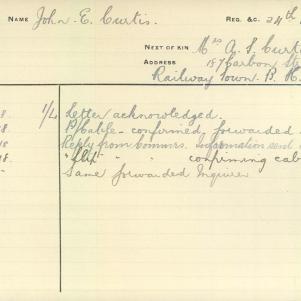 NAME John E. Curtis. REG. &C. 24th
NEXT OF KIN Mrs A. S. Curti
ADDRESS 187 Carbon Str
Railway Town. B. H.
8. 1/4 Letter acknowledged.
8. B/Cable - confirmed forwarded
18 Reply from Commrs. Information sent
18. " " confirming cab
" Same forwarded Inquirer